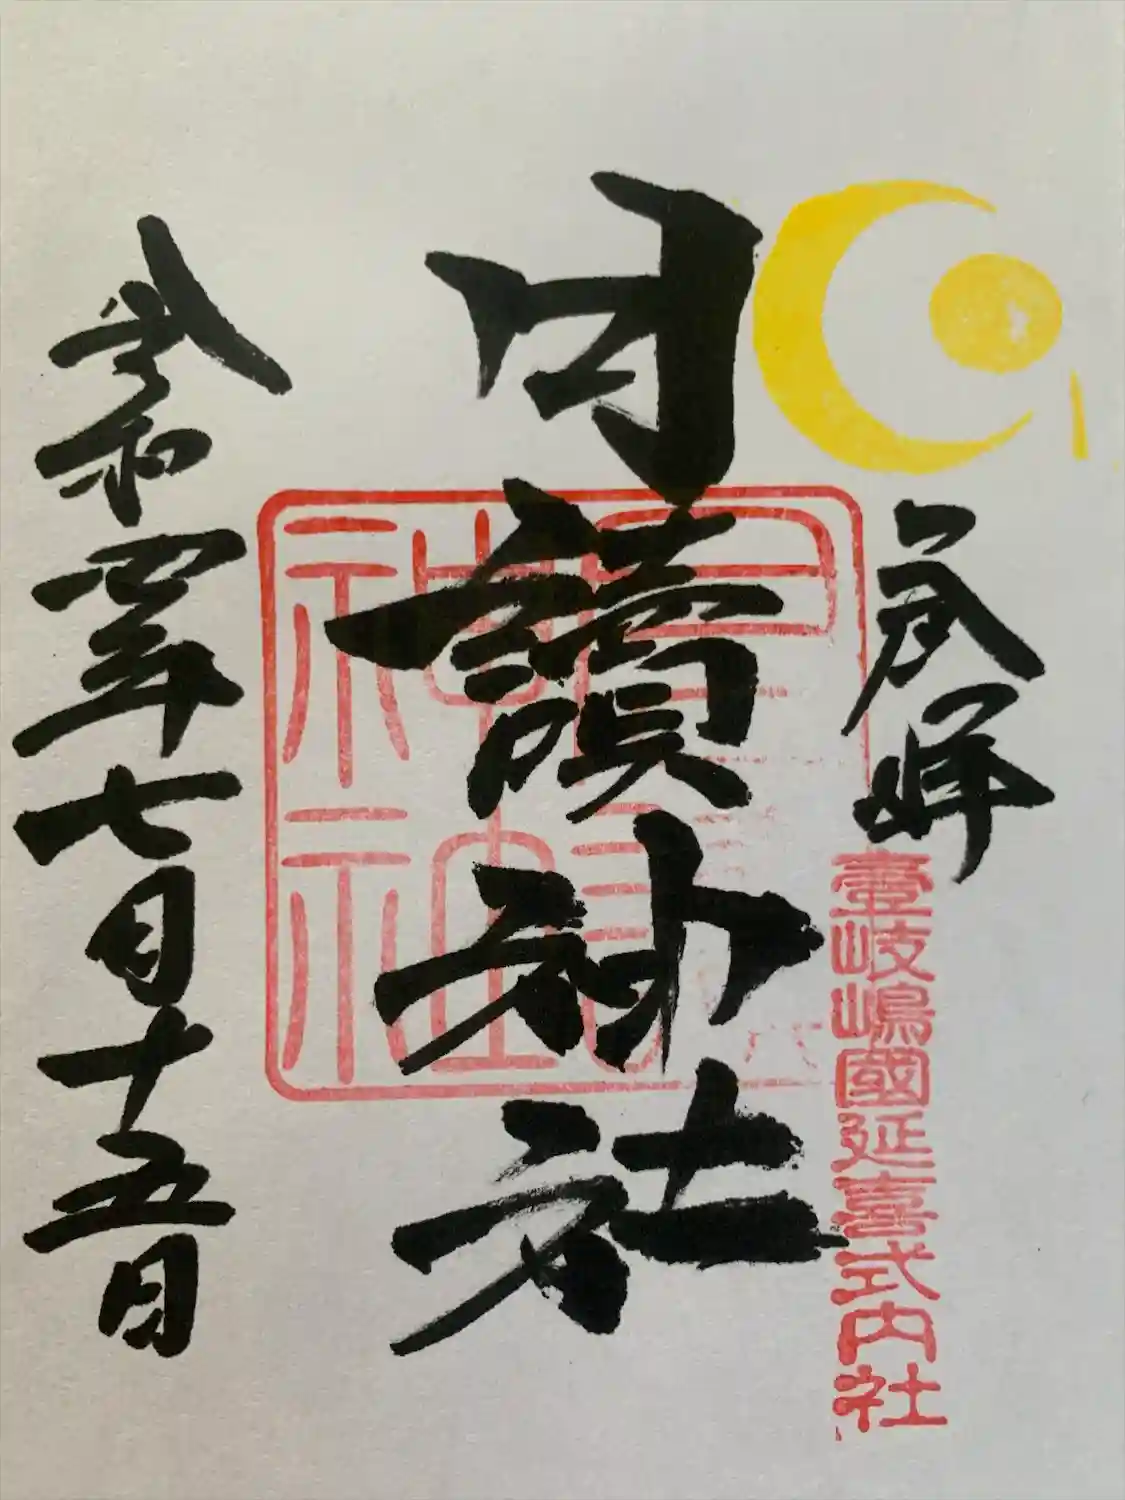 奉拝
壹岐嶋國延喜式内社
月讀神社
月讀神社
令和四年七月十五日